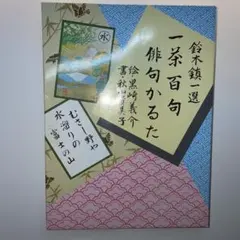 鈴木鎮一選
一茶百句
俳句かるた
絵 黒崎義介
書 秋
子
水
むさし野や
水溜りの
富士の山